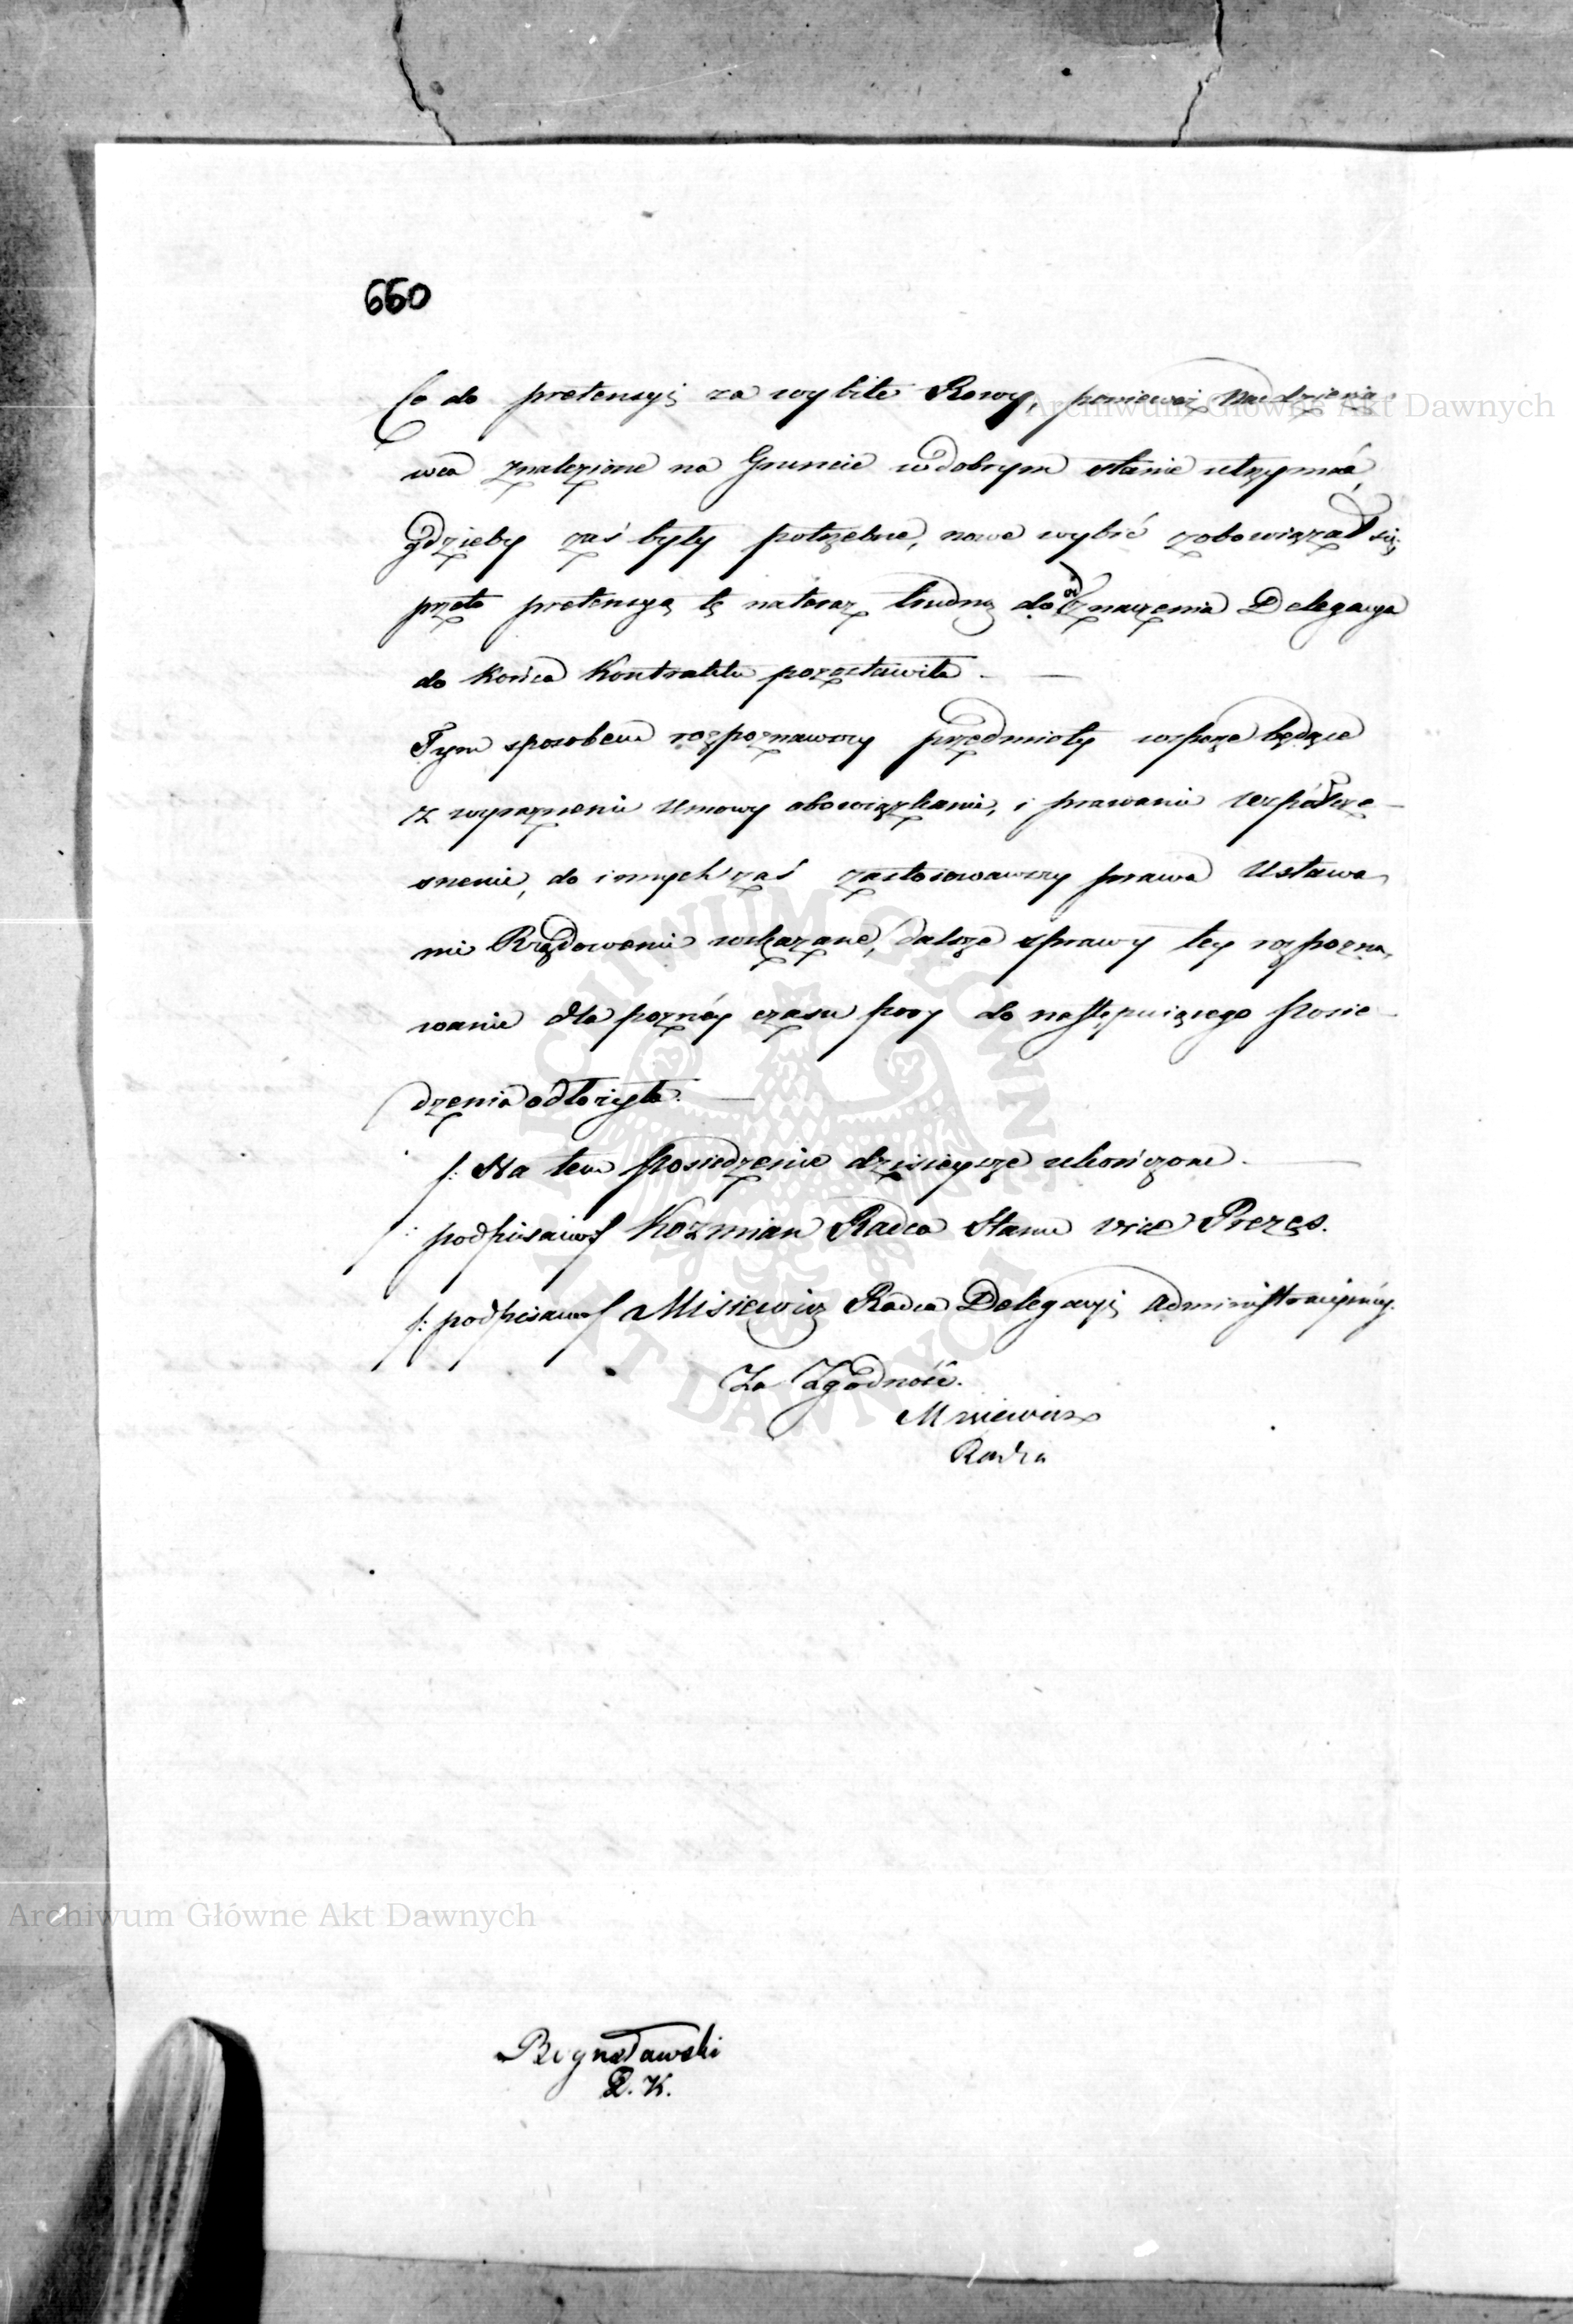 660
Co do pretensyi za wybite Rowy, ponieważ Naddzierża-
wca znalezione na Gruncie w dobrym stanie utrzymać,
gdzieby zaś były potrzebne, nowe wybić zobowiązał się,
przeto pretensyą tę na teraz trudną do oznaczenia Delegacya
do końca Kontraktu pozostawiła. —
Tym sposobem rozpoznawszy przedmioty w sporze będące
z wyrażnemi Umowy obowiązkami, i prawami
do innych zaś zastosowawszy prawa Ustawa-
mi Rządowemi wskazane, dalsze sprawy tey rozpozna-
wanie dla pozney czasu pory do następuiącego Posie-
dzenia odłożyła. —
/: Na tem Posiedzenie dzisieysze ukończone. —
/: podpisano/ Kozmian Radca Stanu vice Prezes.
/: podpisano/ Misiewicz Radca Delegacyi Administracyiney.
Za Zgodność.
Misiewicz
Radca
Archiwum Główne Akt Dawnych
Archiwum Główne Akt Dawnych
ARCHIWUM GŁÓWNE AKT DAWNYCH
Bogusławski